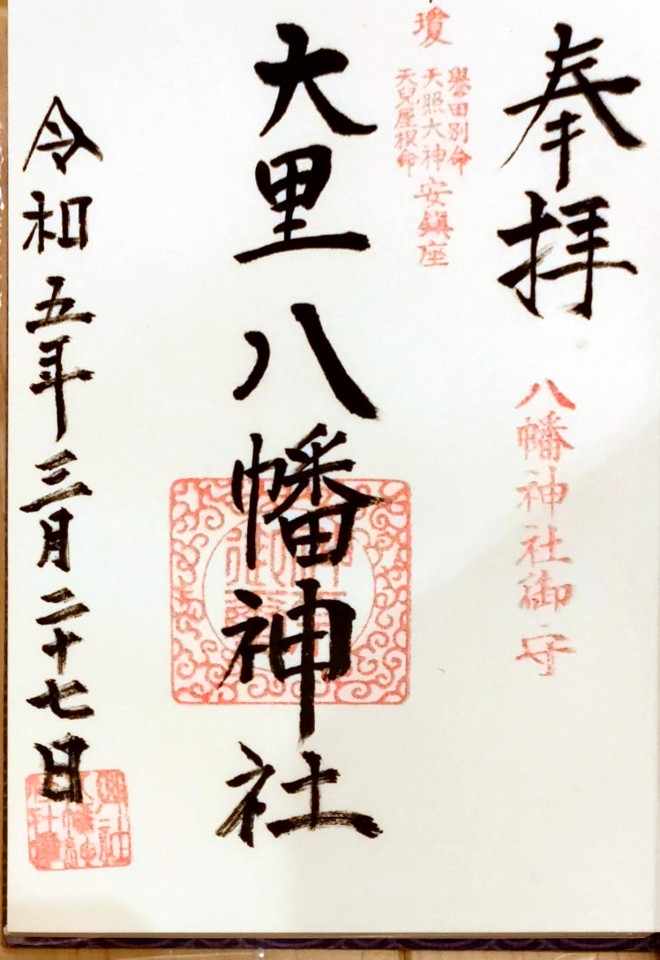 奉拝
八幡神社御守
瓊
譽田別命
天照大神
天兒屋根命
安鎮座
大里八幡神社
令和五年三月二十七日